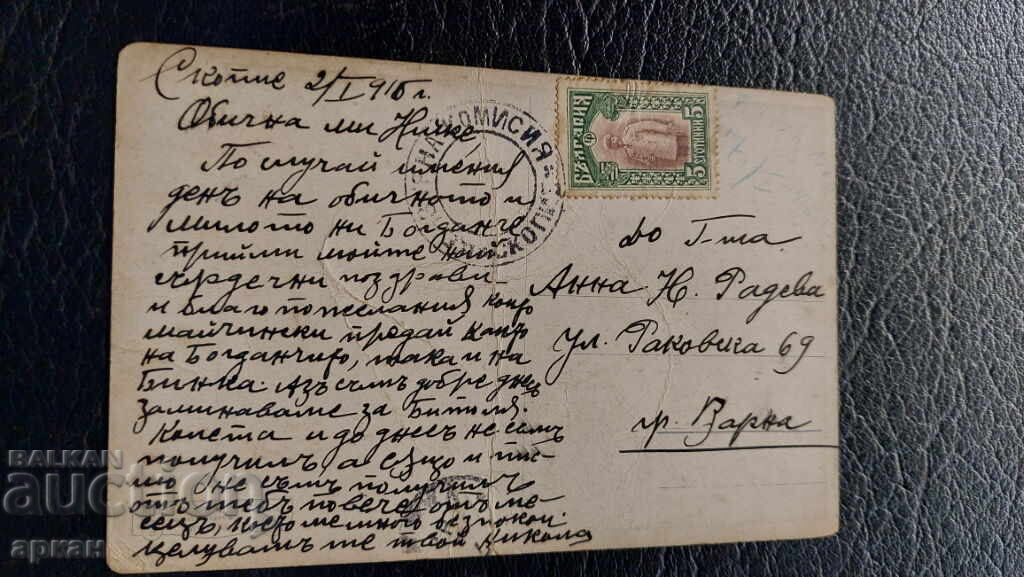 Скопие 2/I 916 г.
Обична ми Нике
По случай имения
день на обичното и
милото ни Богданче
приими моите най
сърдечни поздрави
и благопожелания които
майчински предай както
на Богданчито, така и на
Бинка. Азъ съмъ добре днесъ
заминаваме за Битоля.
Колета и до днесъ не съмъ
получилъ а също и пис-
мо не съмъ получилъ
отъ тебъ повече отъ ме-
сецъ, което ме много безпокои.
Целувамъ те твой Никола
КОМИСИЯ
СКОПИЕ
БЪЛГАРИЯ
5 СТОТИНКИ 5
До Г-жа
Анна Н. Радева
ул. Раковска 69
гр. Варна
BALKAN
auction
аркан